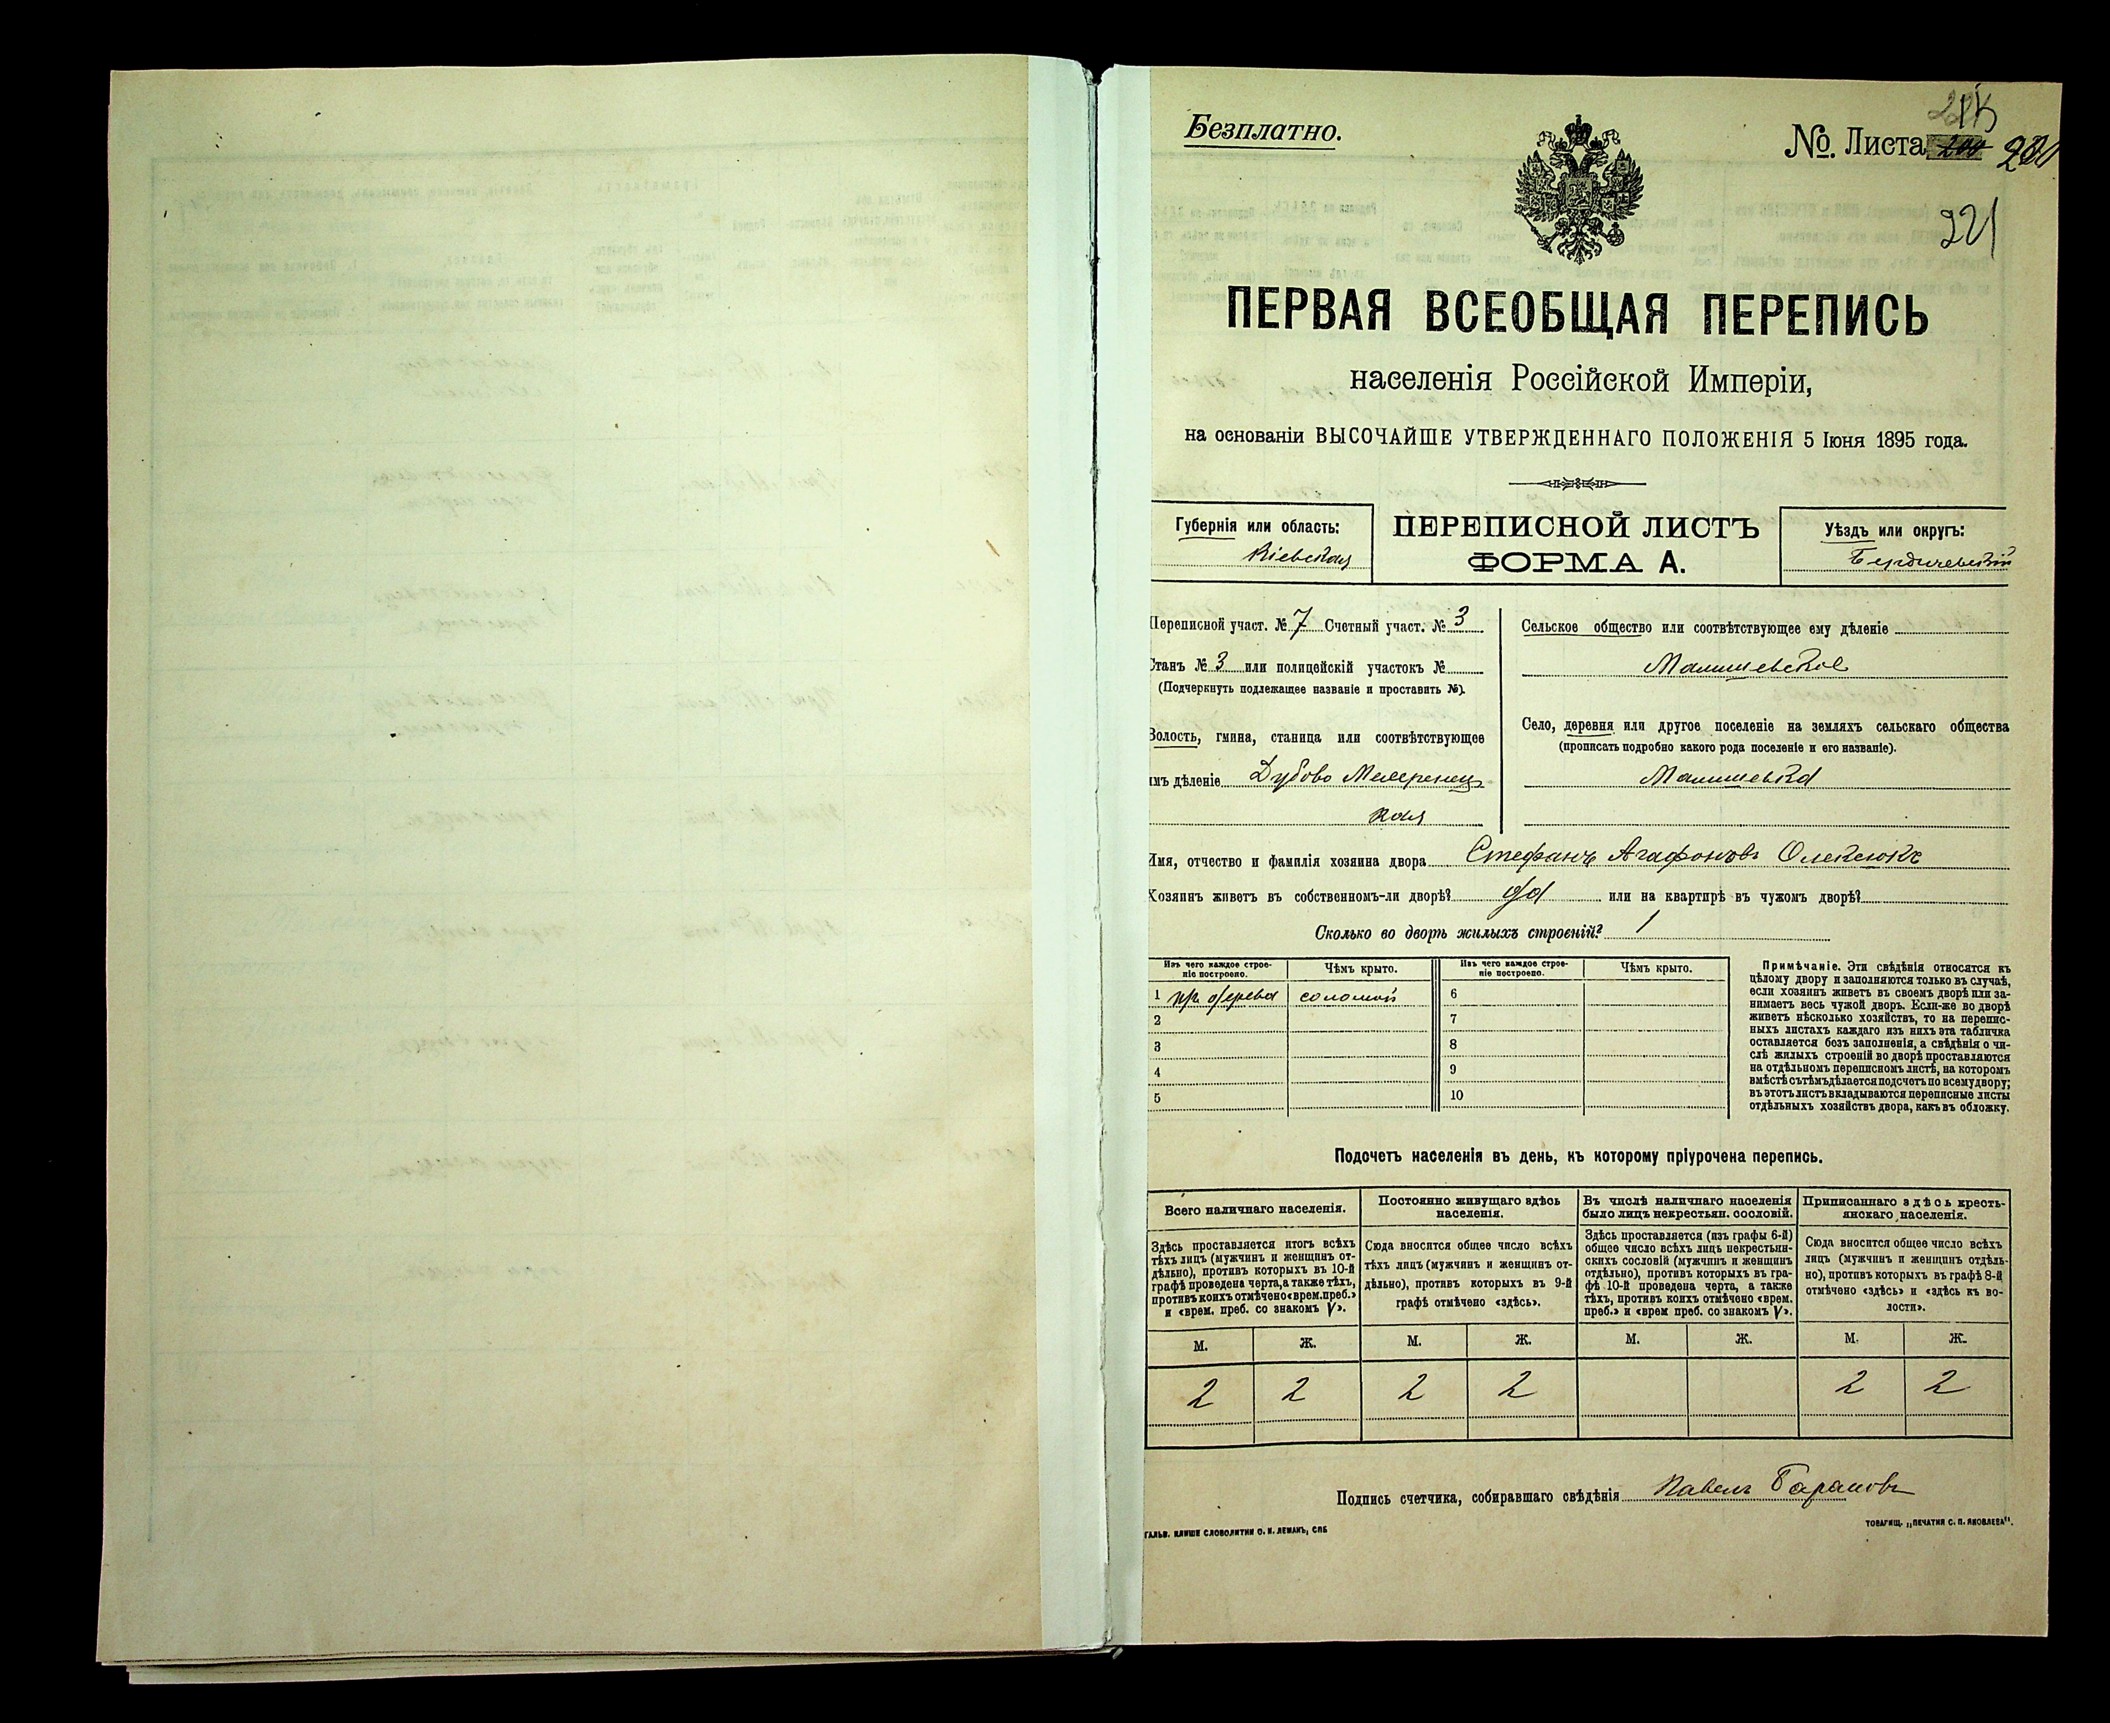 Безплатно.
№. Листа 200 280
221
ПЕРВАЯ ВСЕОБЩАЯ ПЕРЕПИСЬ
населенія Россійской Имперіи,
на основаніи ВЫСОЧАЙШЕ УТВЕРЖДЕННАГО ПОЛОЖЕНІЯ 5 Іюня 1895 года.
Губернія или область:
Кіевская
ПЕРЕПИСНОЙ ЛИСТЪ
ФОРМА А.
Уѣздъ или округъ:
Бердичевскій
Переписной участ. № 7 Счетный участ. № 3
Станъ № 3 или полицейскій участокъ №
(Подчеркнуть подлежащее названіе и проставить №).
Волость, гмина, станица или соотвѣтствующее
имъ дѣленіе Дубово Мехеренец
кая
Сельское общество или соотвѣтствующее ему дѣленіе
Малишевское
Село, деревня или другое поселеніе на земляхъ сельскаго общества
(прописать подробно какого рода поселеніе и его названіе).
Малишевка
Имя, отчество и фамилія хозяина двора Стефанъ Агафоновъ Олексюкъ
Хозяинъ живетъ въ собственномъ-ли дворѣ? да или на квартирѣ въ чужомъ дворѣ?
Сколько во дворѣ жилыхъ строеній? 1
Изъ чего каждое строе-
ніе построено.
Чѣмъ крыто.
Изъ чего каждое строе-
ніе построено.
Чѣмъ крыто.
1 изъ дерева соломой 6
2 7
3 8
4 9
5 10
Примѣчаніе. Эти свѣдѣнія относятся къ
цѣлому двору и заполняются только въ случаѣ,
если хозяинъ живетъ въ своемъ дворѣ или за-
нимаетъ весь чужой дворъ. Если-же во дворѣ
живетъ нѣсколько хозяйствъ, то на перепис-
ныхъ листахъ каждаго изъ нихъ эта табличка
оставляется безъ заполненія, а свѣдѣнія о чи-
слѣ жилыхъ строеній во дворѣ проставляются
на отдѣльномъ переписномъ листѣ, на которомъ
вмѣстѣ съ тѣмъ дѣлается подсчетъ по всему двору;
въ этотъ листъ вкладываются переписные листы
отдѣльныхъ хозяйствъ двора, какъ въ обложку.
Подсчетъ населенія въ день, къ которому пріурочена перепись.
Всего наличнаго населенія.
Здѣсь проставляется итогъ всѣхъ
тѣхъ лицъ (мужчинъ и женщинъ от-
дѣльно), противъ которыхъ въ 10-й
графѣ проведена черта, а также тѣхъ,
противъ коихъ отмѣчено «врем. преб.»
и «врем. преб. со знакомъ V».
Постоянно живущаго здѣсь
населенія.
Сюда вносится общее число всѣхъ
тѣхъ лицъ (мужчинъ и женщинъ от-
дѣльно), противъ которыхъ въ 9-й
графѣ отмѣчено «здѣсь».
Въ числѣ наличнаго населенія
было лицъ некрестьян. сословій.
Здѣсь проставляется (изъ графы 6-й)
общее число всѣхъ лицъ некрестьян-
скихъ сословій (мужчинъ и женщинъ
отдѣльно), противъ которыхъ въ гра-
фѣ 10-й проведена черта, а также
тѣхъ, противъ коихъ отмѣчено «врем.
преб.» и «врем преб. со знакомъ V».
Приписаннаго здѣсь кресть-
янскаго населенія.
Сюда вносится общее число всѣхъ
лицъ (мужчинъ и женщинъ отдѣль-
но), противъ которыхъ въ графѣ 8-й
отмѣчено «здѣсь» и «здѣсь къ во-
лости».
М. Ж. М. Ж. М. Ж. М. Ж.
2 2 2 2 2 2
Подпись счетчика, собиравшаго свѣдѣнія Павелъ Барановъ
ГАЛЬВ. КЛИШЕ СЛОВОЛИТНИ О. И. ЛЕМАНЪ, СПБ
ТОВАРИЩ. „ПЕЧАТНЯ С. П. ЯКОВЛЕВА".